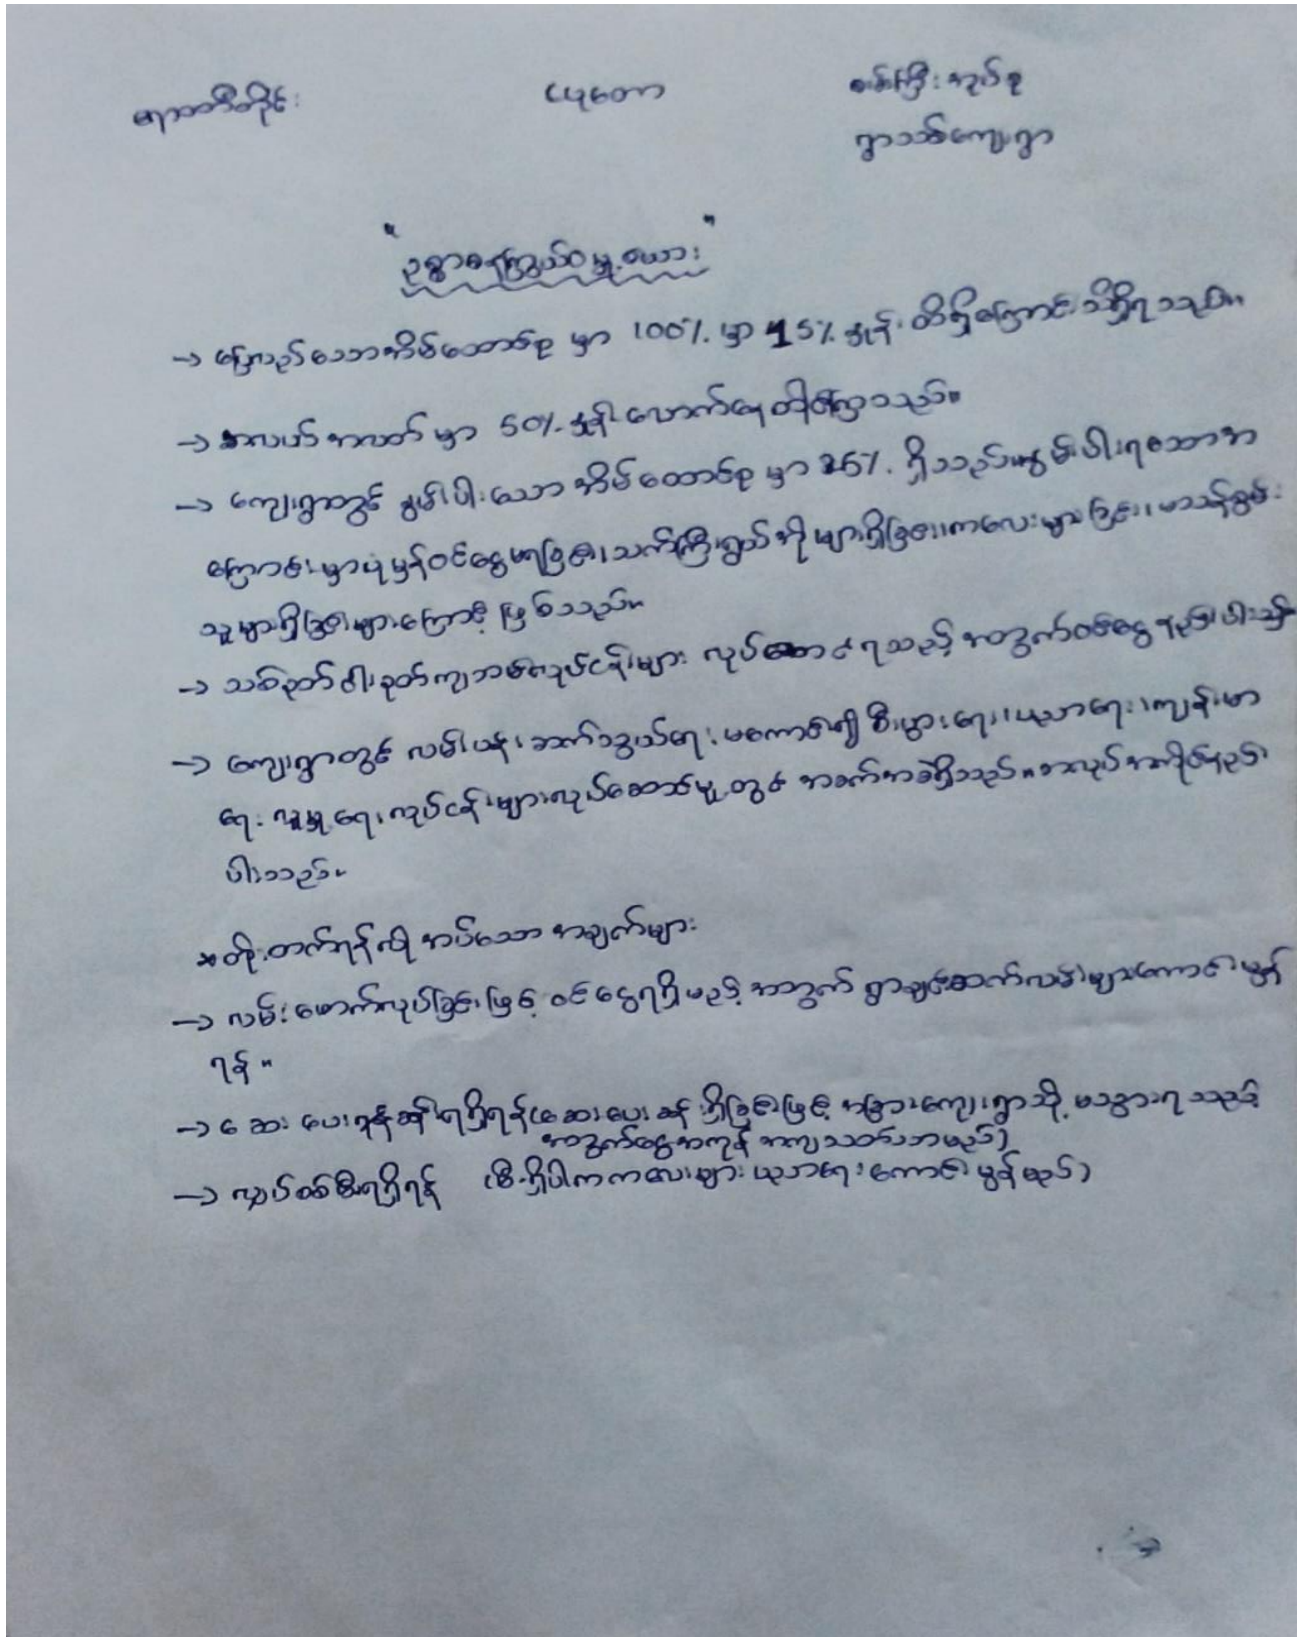 ဧရာဝတီတိုင်း ဖျာပုံ
ရွာသစ်ကျေးရွာ
"ဥစ္စာဓနကြွယ်ဝမှု ဇယား"
→ ပြည့်စုံသောအိမ်ထောင်စု မှာ 100% မှာ 15% နှုန်း ထိရှိကြောင်းသိရှိရသည်။
→ အလယ်အလတ် မှာ 50% နှုန်း လောက်နေထိုင်ကြသည်။
→ ကျေးရွာတွင် နွမ်းပါးသော အိမ်ထောင်စု မှာ 35% ရှိသည်။နွမ်းပါးရသောအ
ကြောင်းမှာပုံမှန်ဝင်ငွေမရခြင်း၊သက်ကြီးရွယ်အိုများရှိခြင်း၊ကလေးများခြင်း၊မသန်စွမ်း
သူများရှိခြင်းများကြောင့် ဖြစ်သည်။
→ သစ်ခုတ်ဝါးခုတ်ကျဘမ်းလုပ်ငန်းများ လုပ်ဆောင်ရသည့် အတွက်ဝင်ငွေနည်းပါးသည်
→ ကျေးရွာတွင် လမ်းပန်း ဆက်သွယ်ရေး မကောင်း၍ စီးပွားရေး၊ပညာရေး၊ကျန်းမာ
ရေး လူမှုရေး လုပ်ငန်းများလုပ်ဆောင်မှုတွင် အခက်အခဲရှိသည်။အလုပ်အကိုင်နည်း
ပါးသည်။
* တိုးတက်ရန်လိုအပ်သော အချက်များ
→ လမ်းဖောက်လုပ်ခြင်းဖြင့် ဝင်ငွေရရှိမည့် အတွက် ရွာချင်းဆက်လမ်းများကောင်းမွန်
ရန်။
→ ဆေးပေးခန်းရရှိရန်(ဆေးပေးခန်းရှိခြင်းဖြင့် အခြားကျေးရွာသို့ မသွားရသည့်
အတွက်ငွေအကုန် အကျသက်သာမည်)
→ လျှပ်စစ်မီးရရှိရန် (မီးရှိပါကကလေးများ ပညာရေးကောင်းမွန်မည်)